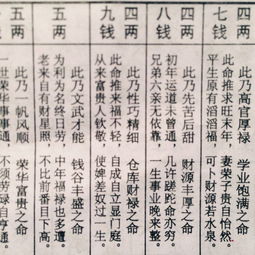 四两
七钱
此乃高官厚禄 学业饱满之命
此命推求旺末年，妻荣子贵自怡然。
平生原有滔滔福，可卜财源若水泉。
四两
八钱
此乃先苦后甜 财源丰厚之命
初年运道未曾通，几许蹉跎命亦穷。
兄弟六亲无依靠，一生事业晚来整。
四两
九钱
此乃性巧精细 仓库财禄之命
此命推来福不轻，自成自立显门庭。
从来富贵人钦敬，使婢差奴过一生。
五两
此乃文武才能 钱谷丰盛之命
为利为名终日劳，中年福禄也多遭。
老来自有财星照，不比前番目下高。
五两
此乃一帆风顺 荣华富贵之命
一世荣华事事通，不须劳碌自亨通。